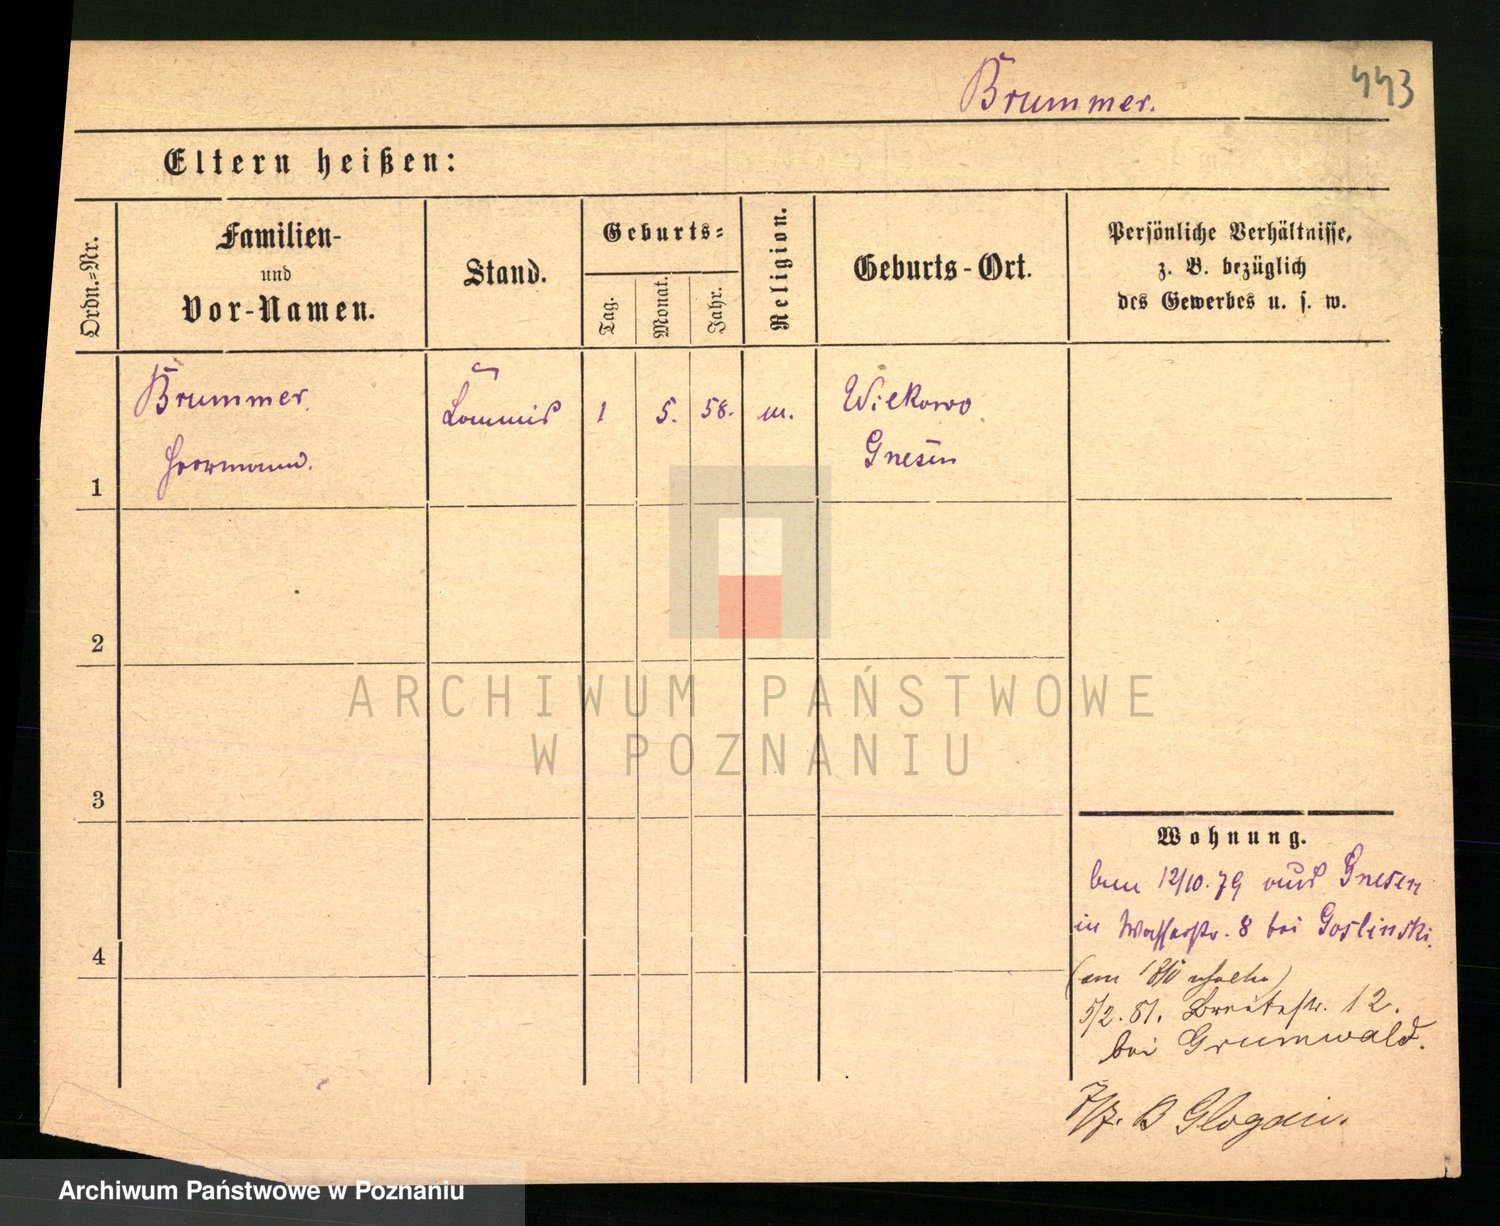 Brummer.
443
Eltern heißen:
Ordn.-Nr.
Familien-
und
Vor-Namen.
Stand.
Geburts-
Tag.
Monat.
Jahr.
Religion.
Geburts-Ort.
Persönliche Verhältnisse,
z. B. bezüglich
des Gewerbes u. s. w.
1
Brummer
Herrmann.
Commis
1
5.
58.
m.
Witkowo
Gnesen
2
3
4
ARCHIWUM PAŃSTWOWE
W POZNANIU
Wohnung.
12/10.79 aus Gnesen
in Wasserstr. 8 bei Goslinski.
(am 18/10
5/2.81. Breitestr. 12.
bei Grumwald.
7/7. Glogau.
Archiwum Państwowe w Poznaniu